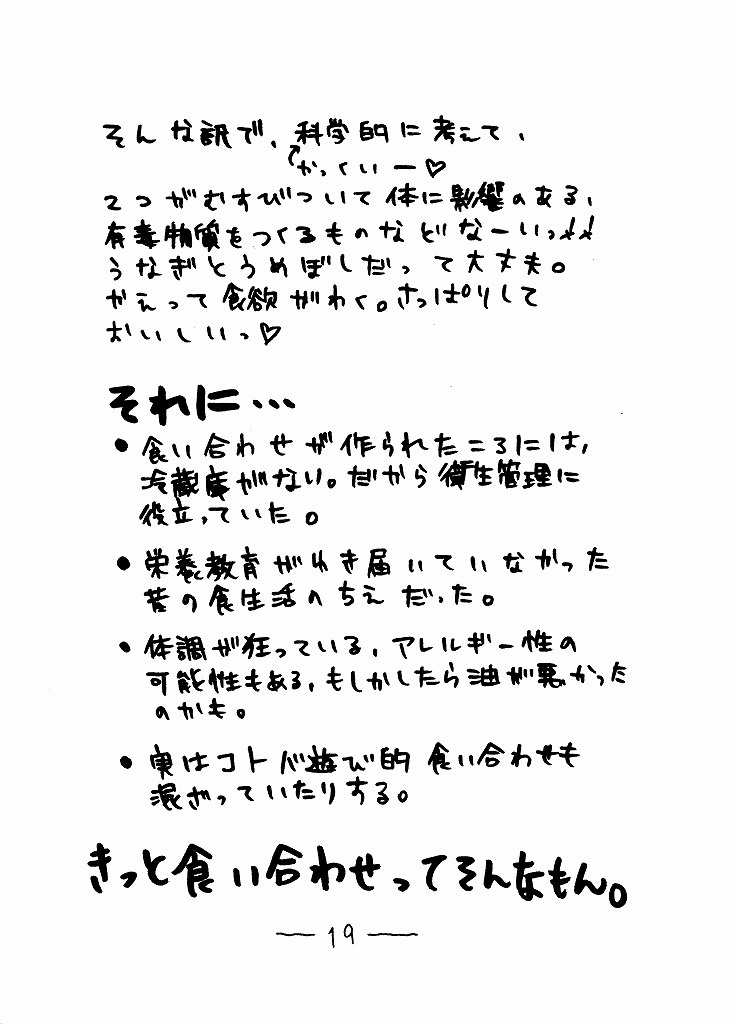 そんな訳で、科学的に考えて、
かっくいー♡
2つがむすびついて体に影響のある、
有毒物質をつくるものなどなーいっ!!
うなぎとうめぼしだって大丈夫。
かえって食欲がわく。さっぱりして
おいしいっ♡
それに…
• 食い合わせが作られたころには、
冷蔵庫がない。だから衛生管理に
役立っていた。
• 栄養教育がいき届いていなかった
昔の食生活のちえだった。
• 体調が狂っている、アレルギー性の
可能性もある、もしかしたら油が悪かった
のかも。
• 実はコトバ遊び的食い合わせも
混ざっていたりする。
きっと食い合わせってそんなもん。
— 19 —